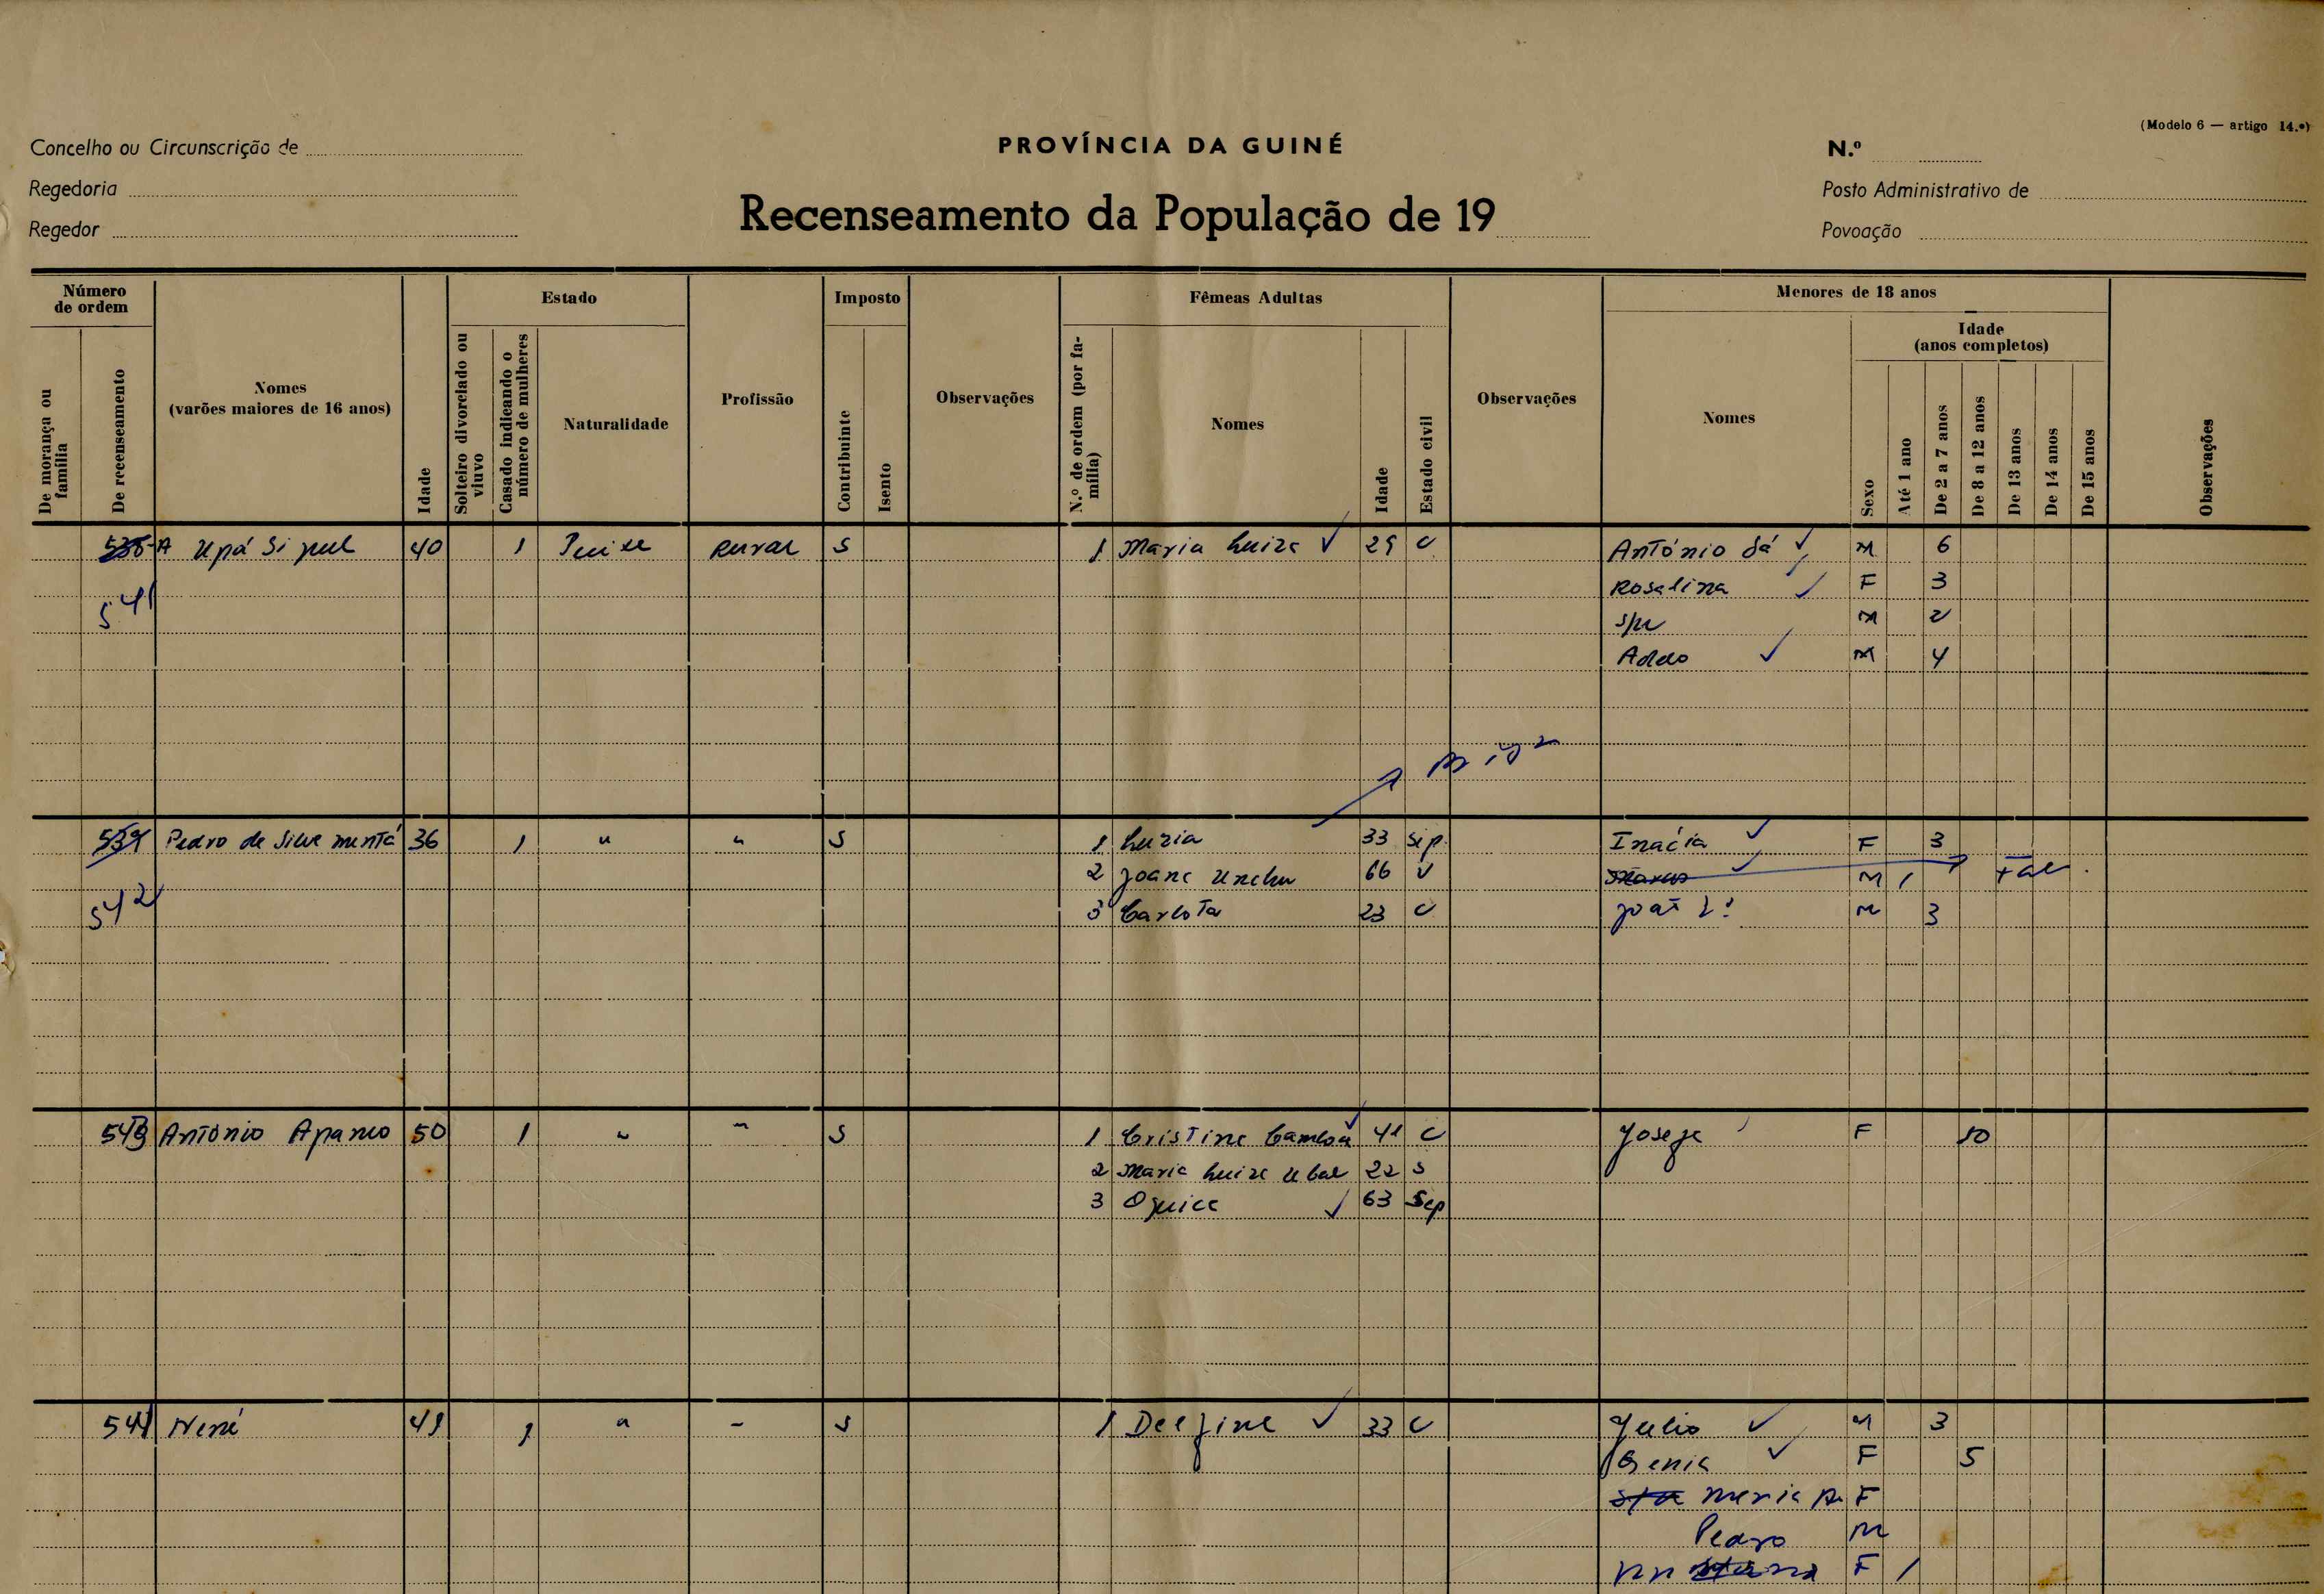 (Modelo 6 — artigo 14.º)
Concelho ou Circunscrição de
PROVÍNCIA DA GUINÉ
N.º
Regedoria
Posto Administrativo de
Recenseamento da População de 19
Regedor
Povoação
Número de ordem
Estado
Imposto
Fêmeas Adultas
Menores de 18 anos
Idade
(anos completos)
De morança ou família
De recenseamento
Nomes
(varões maiores de 16 anos)
Idade
Solteiro divorciado ou viuvo
Casado indicando o número de mulheres
Naturalidade
Profissão
Contribuinte
Isento
Observações
N.º de ordem (por família)
Nomes
Idade
Estado civil
Observações
Nomes
Sexo
Até 1 ano
De 2 a 7 anos
De 8 a 12 anos
De 13 anos
De 14 anos
De 15 anos
Observações
A Upá 40 1 Rural S 1 Maria Luiza 29 C António Sá M 6
541 Rosalina F 3
M 2
M 4
539 Pedro de Silva 36 1 " " S 1 Luzia 33 Sep. Inácia F 3
542 2 Joana 66 V M 1
3 Carlota 23 C M 3
543 António 50 1 " " S 1 Cristina 41 C Josefa F 10
2 Maria Luiza 22 S
3 63 Sep
544 Nené 49 1 " - S 1 Delfina 33 C Julio M 3
F 5
Maria F
Pedro M
F 1